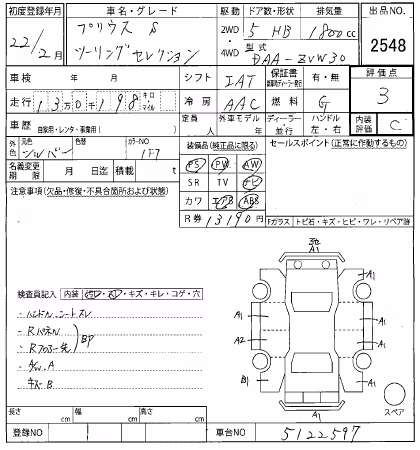 初度登録年月 車名・グレード 駆動 ドア数・形状 排気量 出品NO.
22/2月 プリウス S 2WD 5 HB 1800cc
ツーリングセレクション 4WD 型式 DAA-ZVW30 2548
車検 年 月 シフト IAT 保証書 有・無 評価点
走行 13万0千198 キロ マイル 冷房 AAC 燃料 G 3
車歴 自家用・レンタ・事業用( ) 定員 人 外車モデル 年 ディーラー 並行 ハンドル 左・右 内装評価 C
外色 元色 シルバー 色替 カラーNO 1F7 装備品(純正品に限る) セールスポイント(正常に作動するもの)
名義変更期限 月 日迄 積載 t PS PW AW
注意事項(欠品・修復・不具合箇所および状態) SR TV ナビ
カワ エアB ABS
R券 13190円
Fガラス トビ石・キズ・ヒビ・ワレ・リペア跡
検査員記入 内装 ・キズ・キレ・コゲ・穴
・ハンドル、シートスレ
・Rパネル
・Rフロアー先 BP
・A/W.A
・キズB
A1
A1
A1 A1
A2 A1
B1 A1
A1
スペア
長さ cm 幅 cm 高さ cm
登録NO 車台NO 5122597